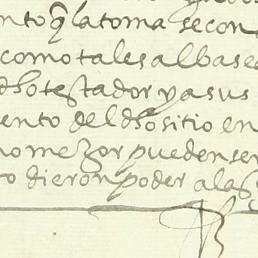 nto q la toma se con
como tales albase
dho testador y a sus
ento del dho sitio en
o mejor pueden ser
o dieron poder a las